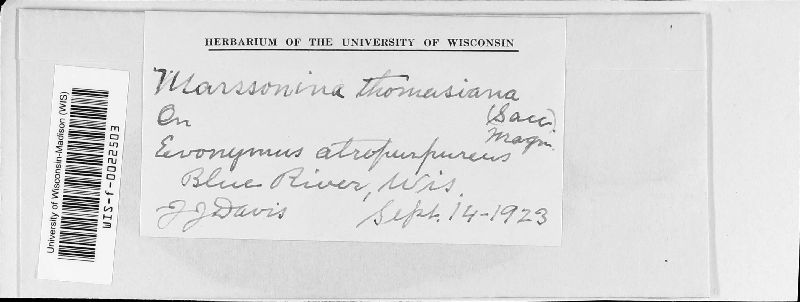 HERBARIUM OF THE UNIVERSITY OF WISCONSIN
Marssonina thomasiana
(Sacc.) Magn.
On
Evonymus atropurpureus
Blue River, Wis.
J J Davis Sept. 14-1923
University of Wisconsin-Madison (WIS)
WIS-f-0022503